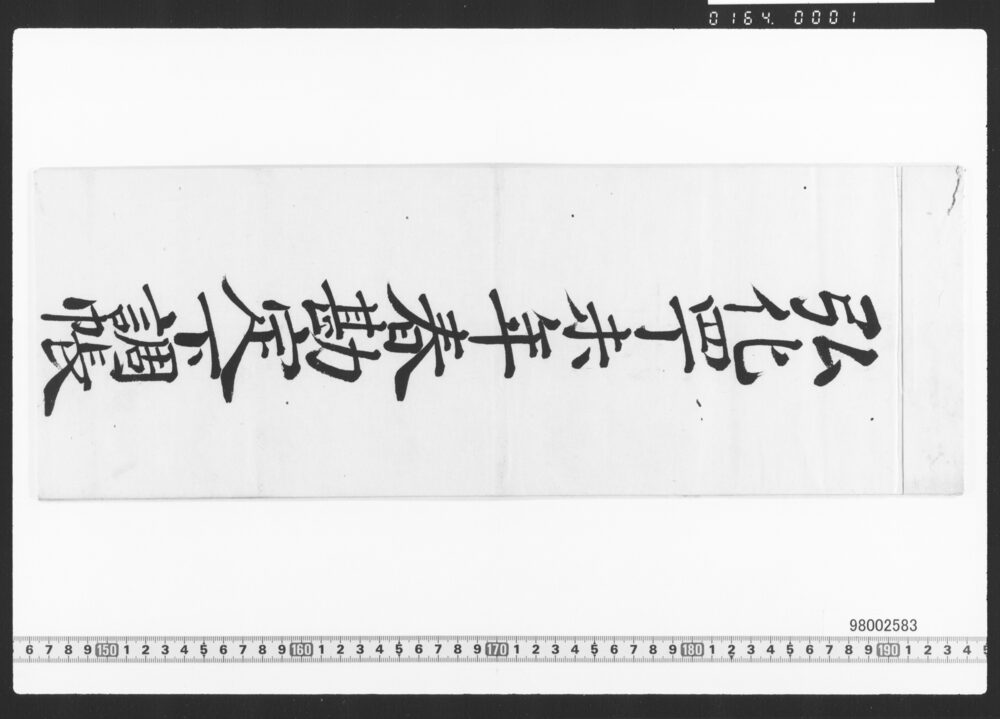 0164. 0001
弘化四丁未年春勘定下調帳
98002583
6 7 8 9 150 1 2 3 4 5 6 7 8 9 160 1 2 3 4 5 6 7 8 9 170 1 2 3 4 5 6 7 8 9 180 1 2 3 4 5 6 7 8 9 190 1 2 3 4